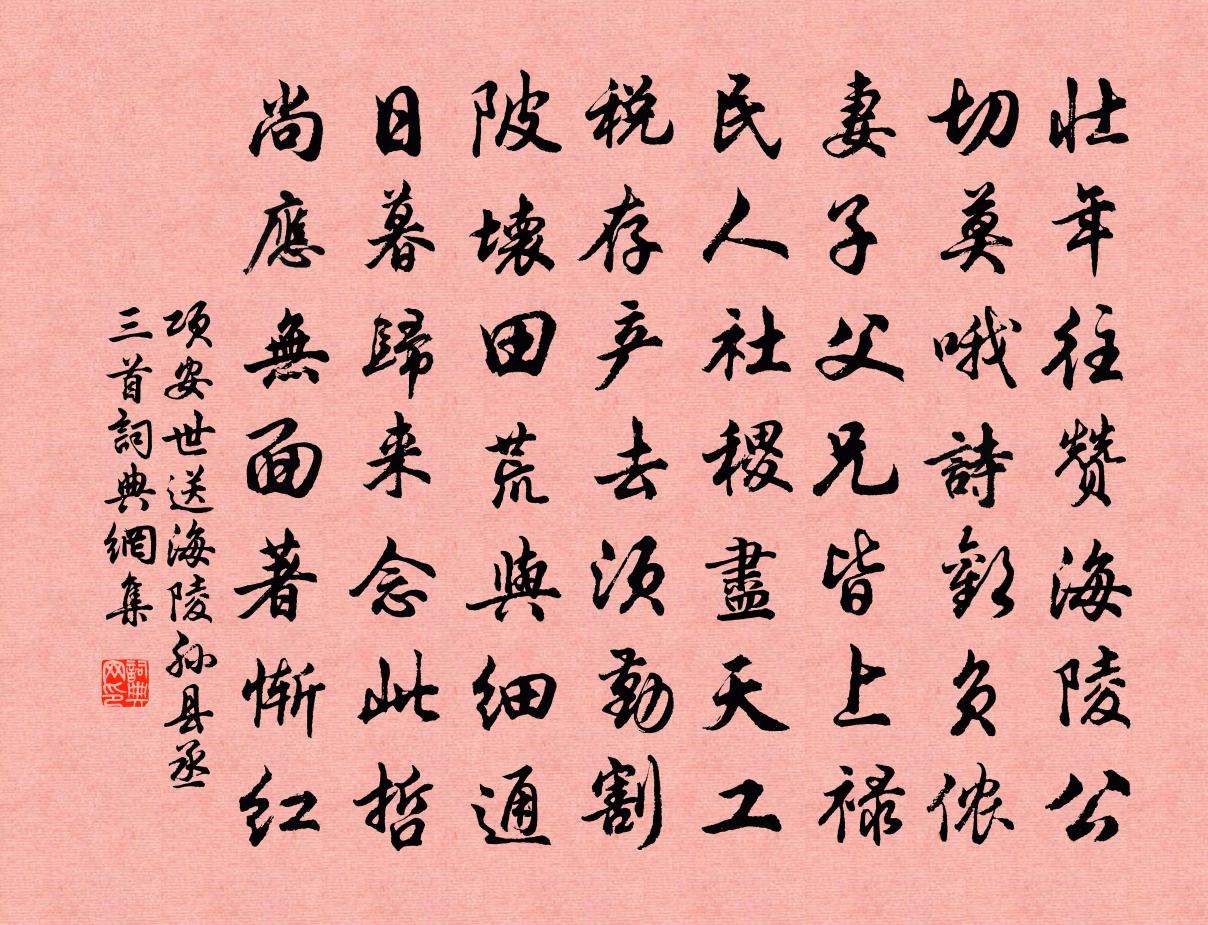 壮年往赞海陵公
切莫哦詩歎负侬
妻子父兄皆上禄
民人社稷盡天工
税存产去须勤割
陂壞田荒與细通
日暮歸来念此哲
尚應無面著惭红
项安世送海陵孙县丞
三首詞典網集
詞典网印